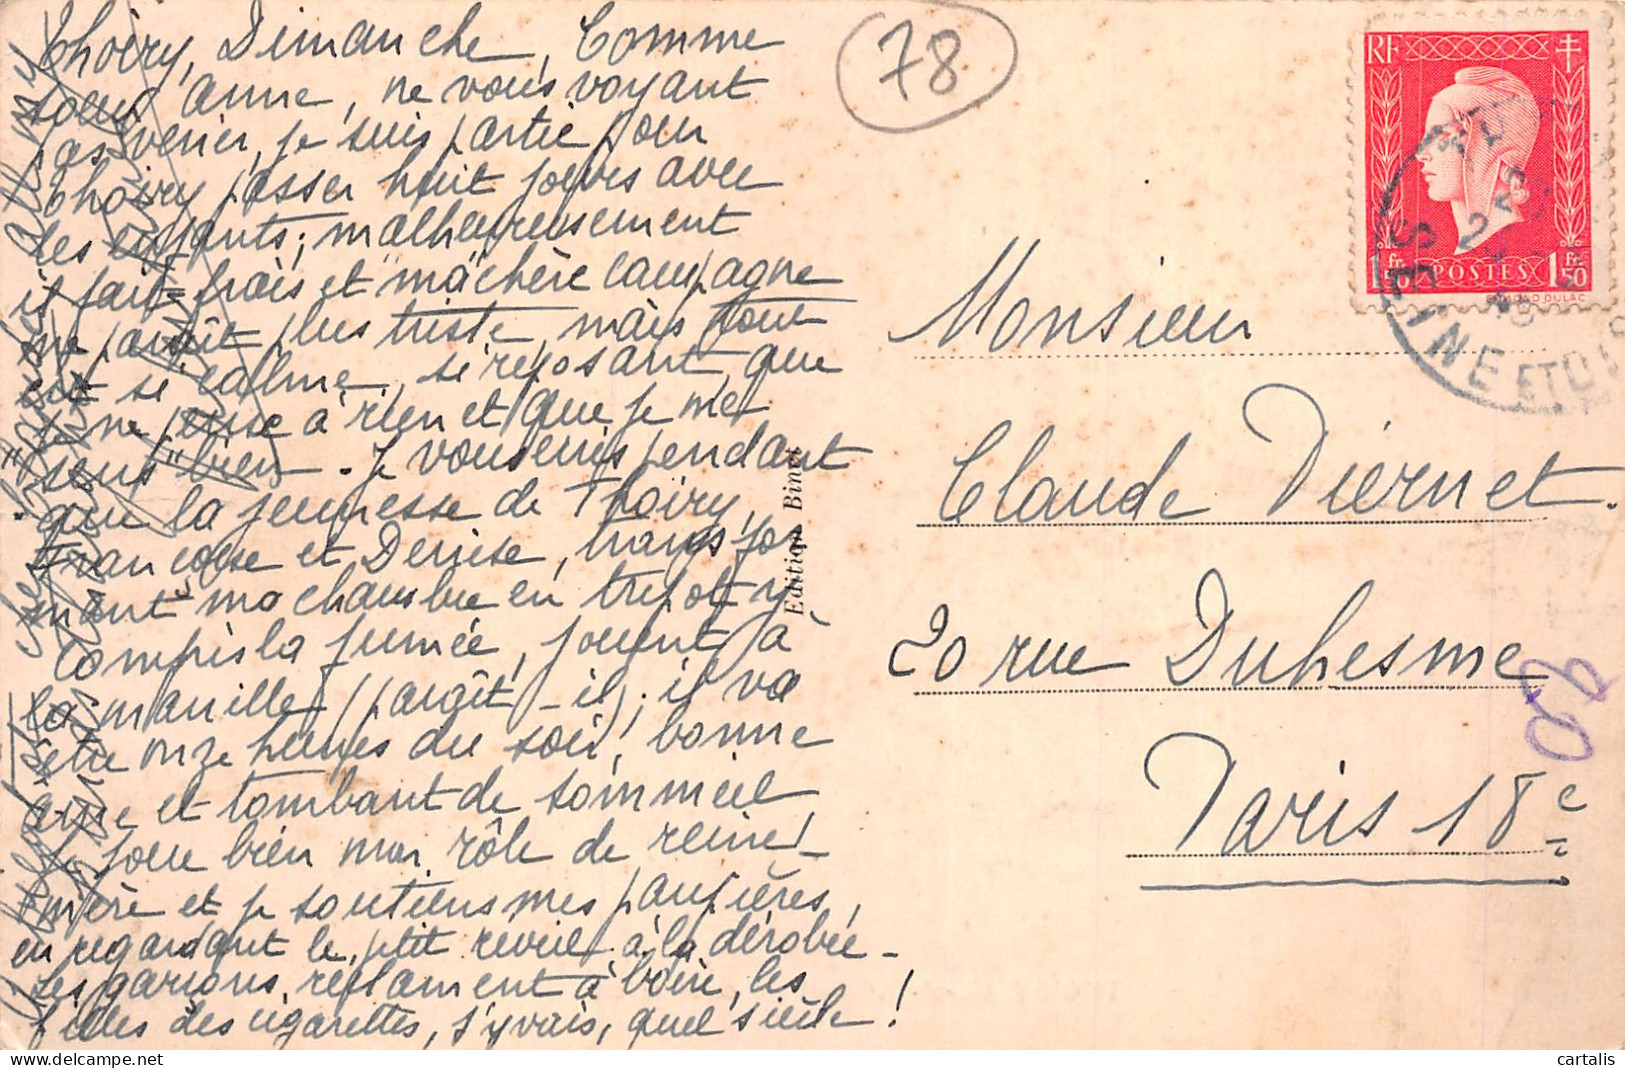 Thoiry, Dimanche, Comme
soeur anne, ne vous voyant
pas venir, je suis partie pour
Thoiry passer huit jours avec
les enfants; malheureusement
il fait frais et "ma" chère campagne
me paraît plus triste, mais tout
est si calme, si reposant, que
je ne pense à rien et que je me
sens "bien". Je vous écris pendant
que la jeunesse de Thoiry,
Françoise et Denise, transfor
mant ma chambre en tripot, y
compris la fumée, jouent à
la manille (paraît-il); il va
être onze heures du soir, bonne
âme et tombant de sommeil
je joue bien mon rôle de reine
mère et je soutiens mes paupières,
en regardant le petit réveil à la dérobée -
Les garçons réclament à boire, les
filles des cigarettes, j'y vais, quel siècle!
78
RF
1 Fr. 50 POSTES 1 Fr. 50
EDMOND DULAC
SEINE ET OISE
Edition Binet
Monsieur
Claude Diernet.
20 rue Duhesme
Paris 18e
cartalis